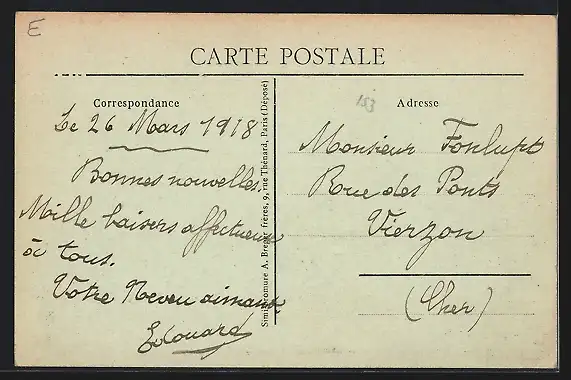 E
CARTE POSTALE
Correspondance
Le 26 Mars 1918
Bonnes nouvelles.
Mille baisers affectueux
à tous.
Votre Neveu aimant
Edouard
Similibromure A. Breger frères, 9, rue Thénard, Paris (Déposé)
153
Adresse
Monsieur Fonlupt
Rue des Ponts
Vierzon
(Cher)